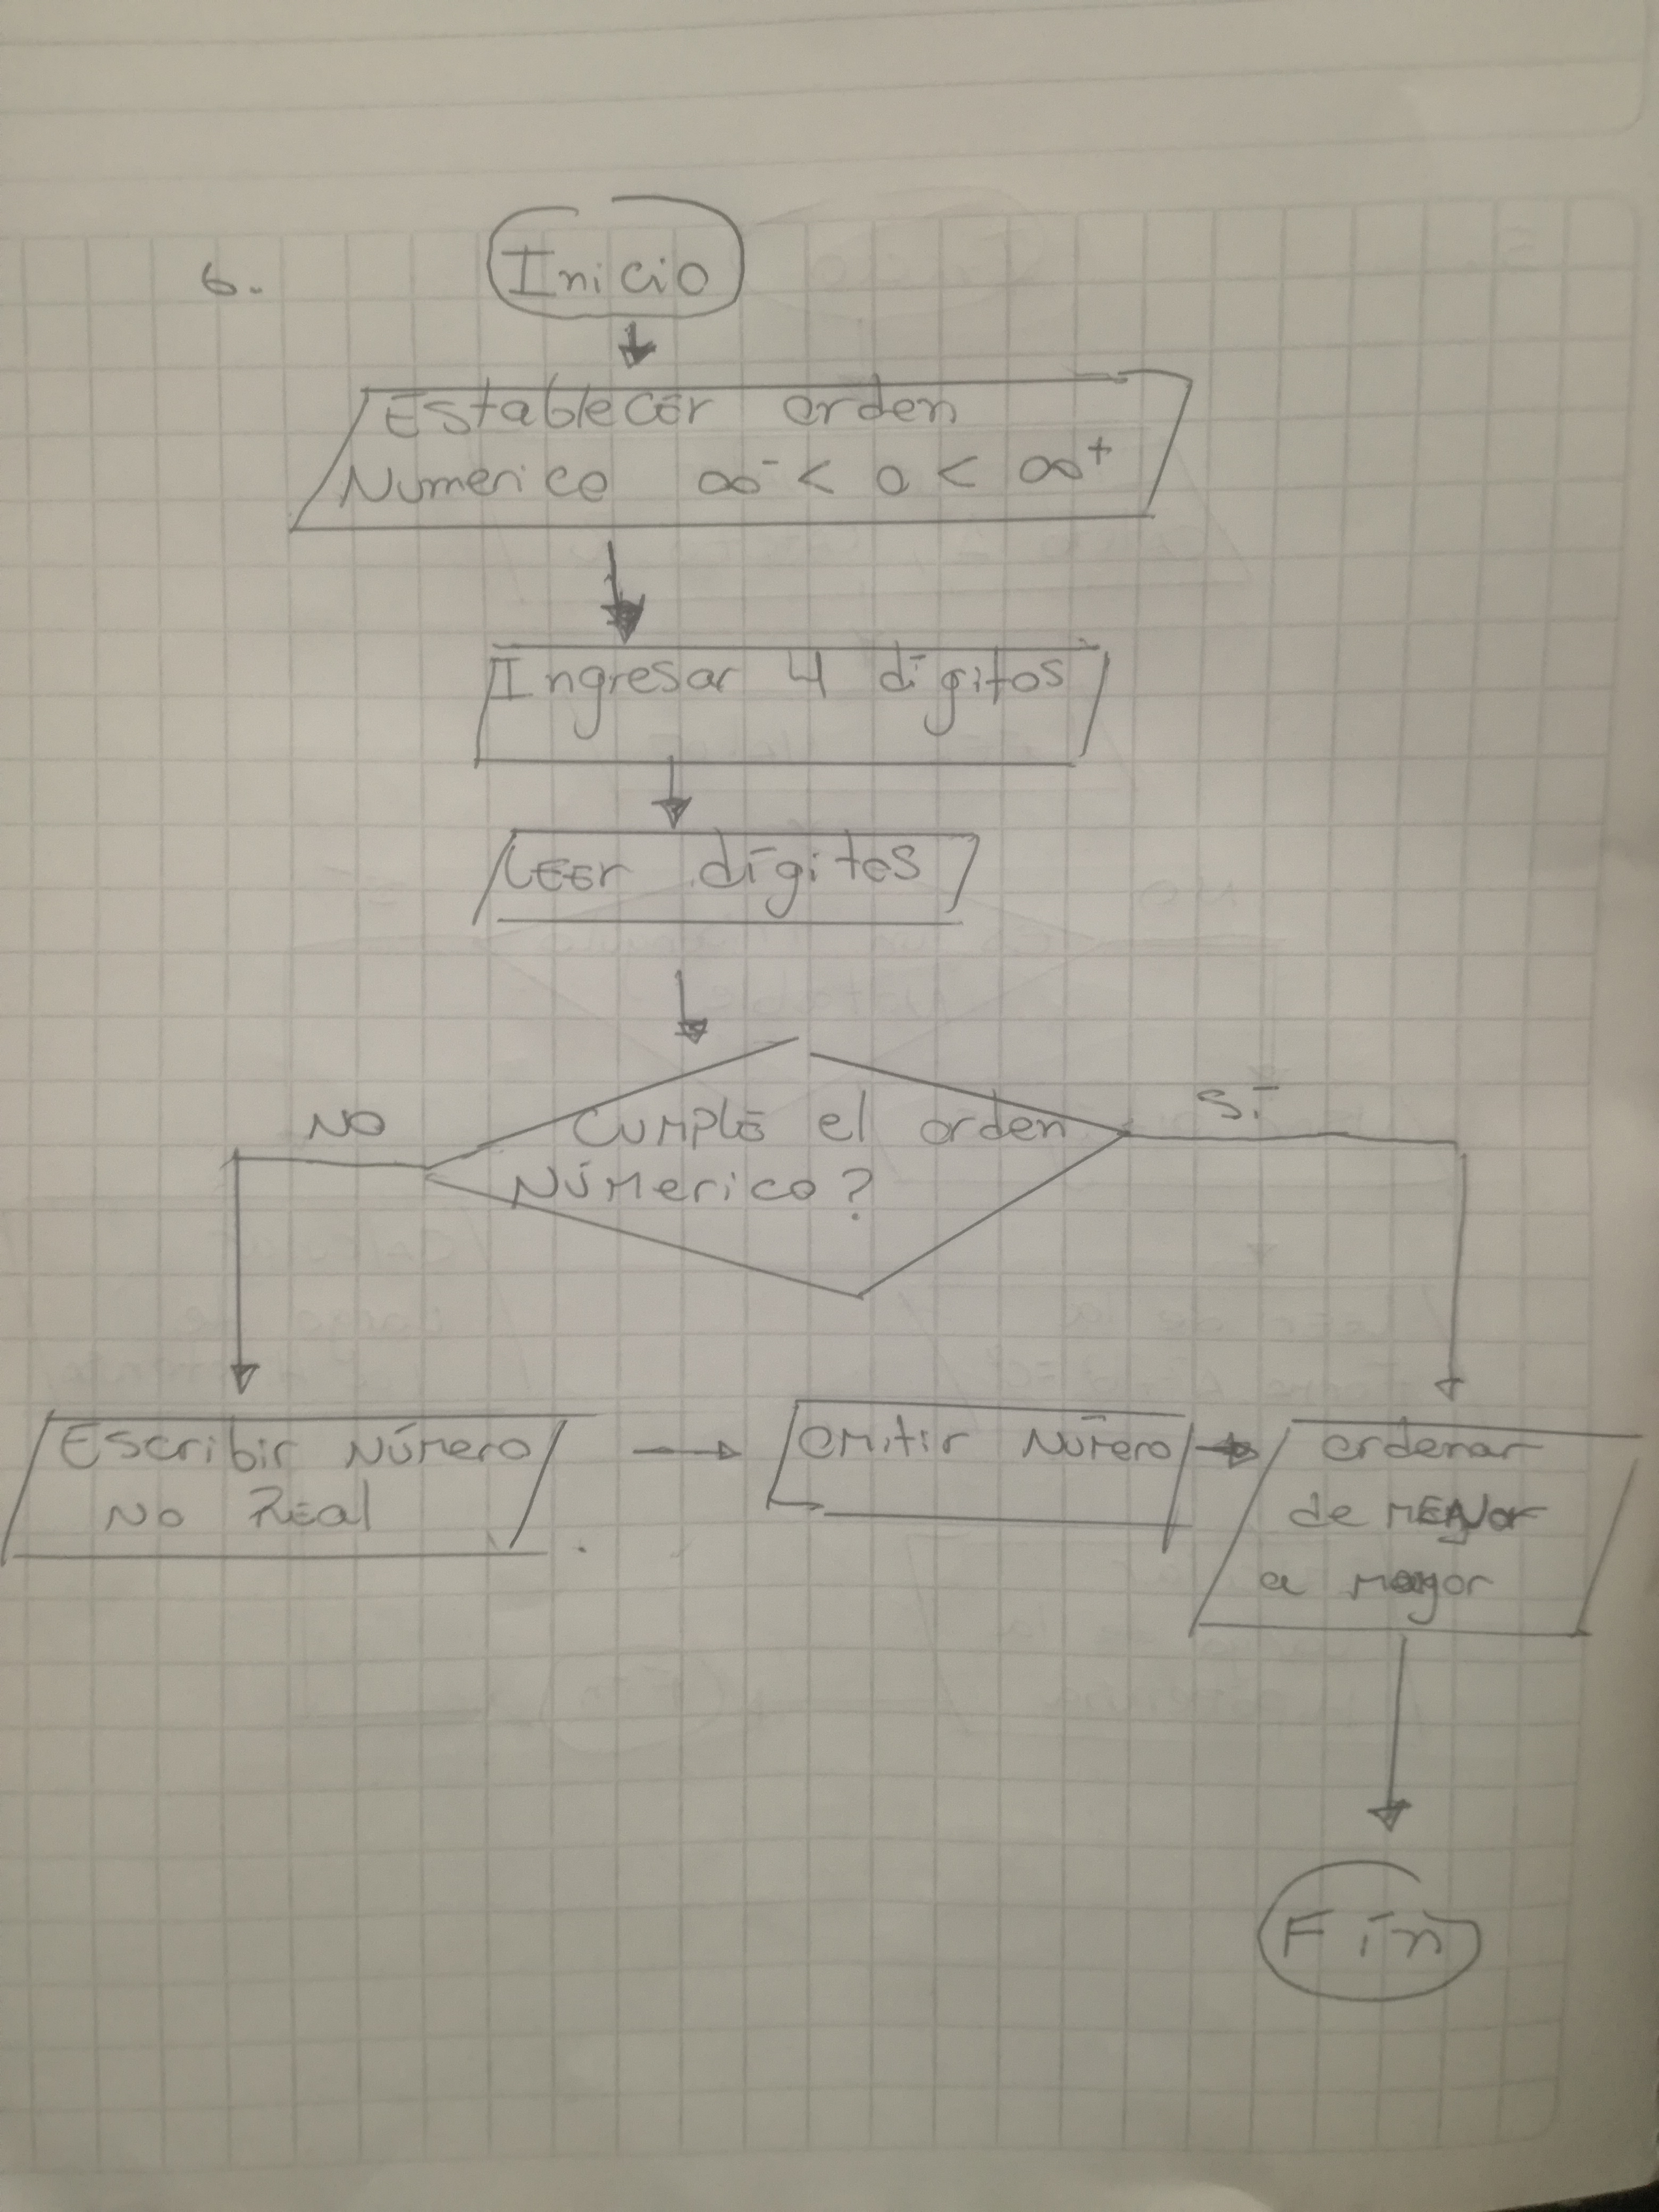 6.
Inicio
Establecer orden
Numerico ∞⁻ < 0 < ∞⁺
Ingresar 4 dígitos
Leer dígitos
Cumple el orden
Númerico?
NO
Sí
Escribir Número
No Real
omitir Número
ordenar
de menor
a mayor
Fin